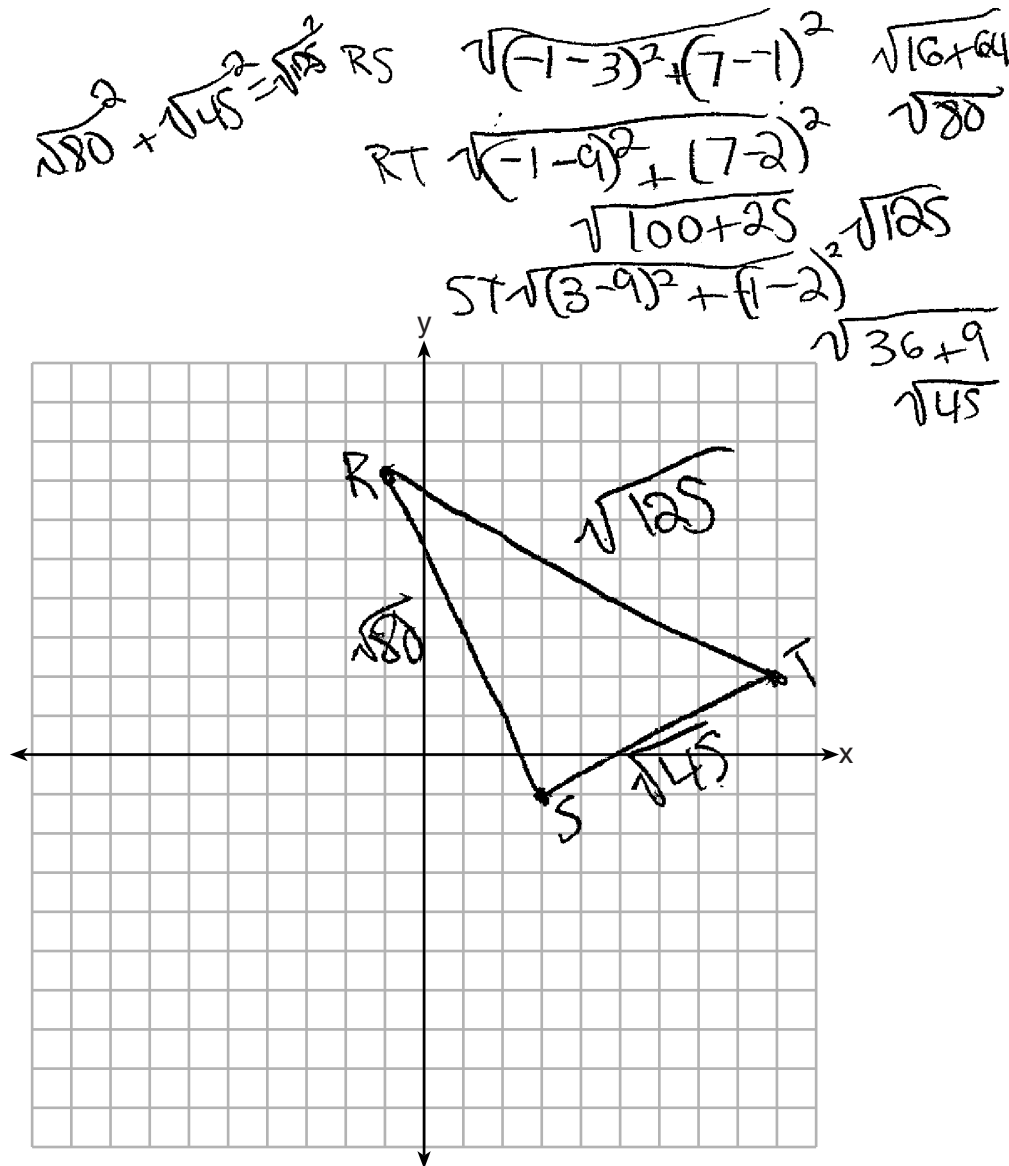 √80² + √45² = √125²
RS √(-1-3)²+(7--1)² √16+64
√80
RT √(-1-9)²+(7-2)²
√100+25 √125
ST √(3-9)²+(-1-2)²
√36+9
√45
y
R
√125
√80
T
x
√45
S